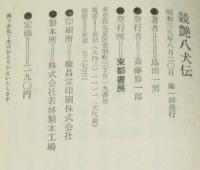 競艶八犬伝
昭和三九年八月二〇日 第一刷発行
●著者───島田一男
●発行者───斎藤修一郎
●発行所───東都書房
東京都文京区音羽町三ノ一九番地
電話＝東京（九四二）一一一一（大代表）
振替＝東京
●印刷所───慶昌堂印刷株式会社
●製本所───株式会社若林製本工場
●定価───二九〇円
落丁・乱丁本はおとりかえいたします